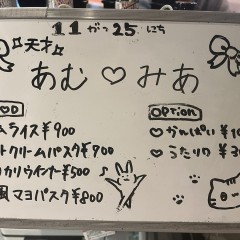 11がつ25にち
天才
あむ♡みあ
OD
ムライス¥900
トクリームパスタ¥700
カリウインナー¥500
風マヨパスタ¥800
Option
♡かんぱい¥10
♡うたリク¥3